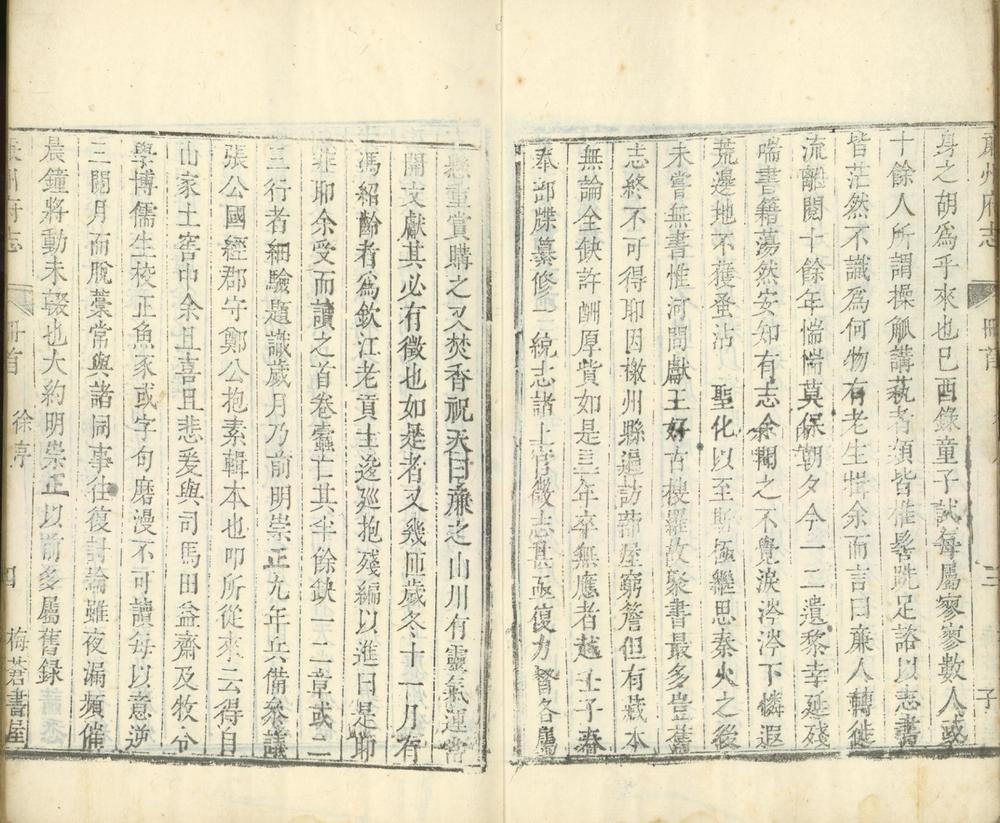 廉州府志 冊首 三 子
身之胡爲乎來也巳酉錄童子試每屬寥寥數人或
十餘人所謂操觚講藝者類皆椎髻跣足諮以志書
皆茫然不識爲何物有老生揖余而言曰廉人轉徙
流離閱十餘年惴惴莫保朝夕今一二遺黎幸延殘
喘書籍蕩然安知有志余聞之不覺淚涔涔下憐遐
荒邊地不獲蚤沾 聖化以至斯極繼思秦火之後
未嘗無書惟河間獻王好古搜羅故聚書最多豈舊
志終不可得耶因檄州縣遍訪蔀屋窮簷但有藏本
無論全缺許酬厚貲如是三年卒無應者越壬子春
奉部牒纂修一統志諸上官徵志甚亟復力督各屬
懸重賞購之又焚香祝天曰廉之山川有靈氣運當
開文獻其必有徵也如是者又幾匝歲冬十一月有
馮紹齡者爲欽江老貢士逡廵抱殘編以進曰是耶
非耶余受而讀之首卷蠹亡其半餘缺一二章或二
三行者細驗題識歲月乃前明崇正九年兵備參議
張公國經郡守鄭公抱素輯本也叩所從來云得自
山家土窖中余且喜且悲爰與司馬田益齋及牧令
學博儒生校正魚豕或字句磨漫不可讀每以意逆
三閱月而脫藁常與諸同事往復討論雖夜漏頻催
晨鐘將動未輟也大約明崇正以前多屬舊錄
廉州府志 冊首 徐序 四 梅蒼書屋